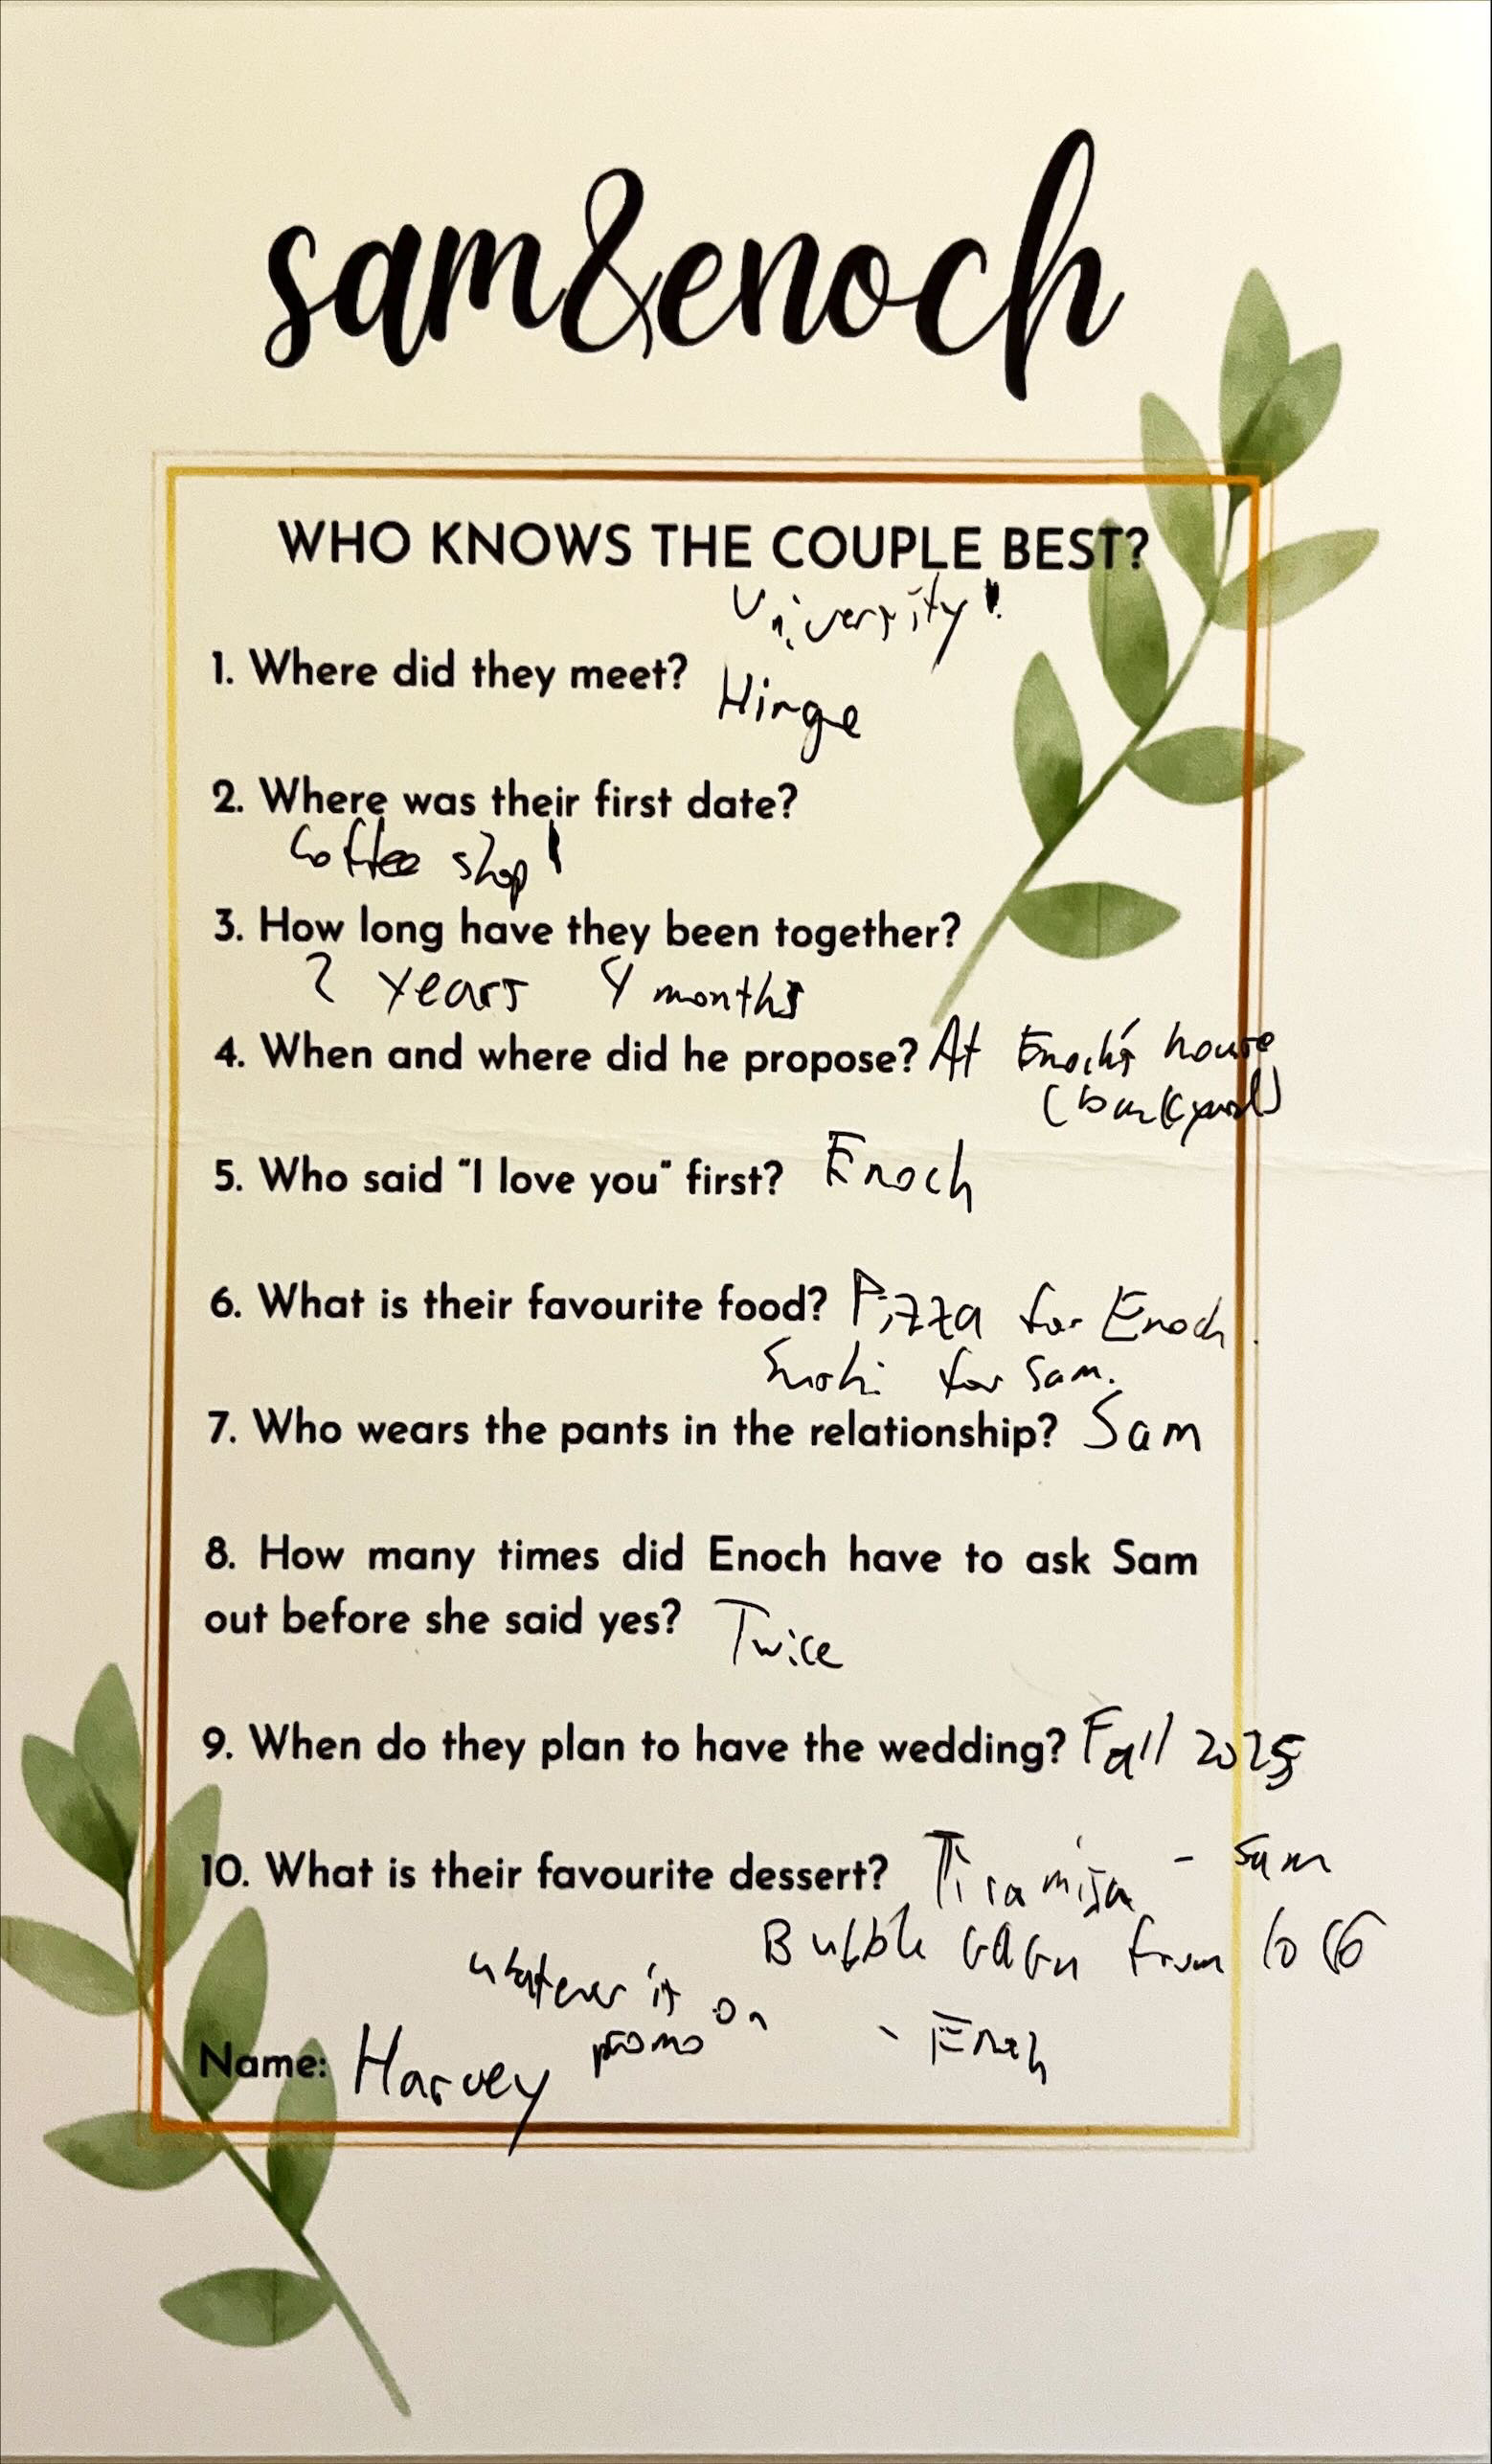 sam&enoch
WHO KNOWS THE COUPLE BEST?
University!
1. Where did they meet? Hinge
2. Where was their first date?
Coffee shop!
3. How long have they been together?
2 years 4 months
4. When and where did he propose? At Enoch's house
(backyard)
5. Who said "I love you" first? Enoch
6. What is their favourite food? Pizza for Enoch.
Sushi for Sam.
7. Who wears the pants in the relationship? Sam
8. How many times did Enoch have to ask Sam
out before she said yes? Twice
9. When do they plan to have the wedding? Fall 2025
10. What is their favourite dessert? Tiramisu - Sam
Bubble from
whatever is on
promo - Enoch
Name: Harvey